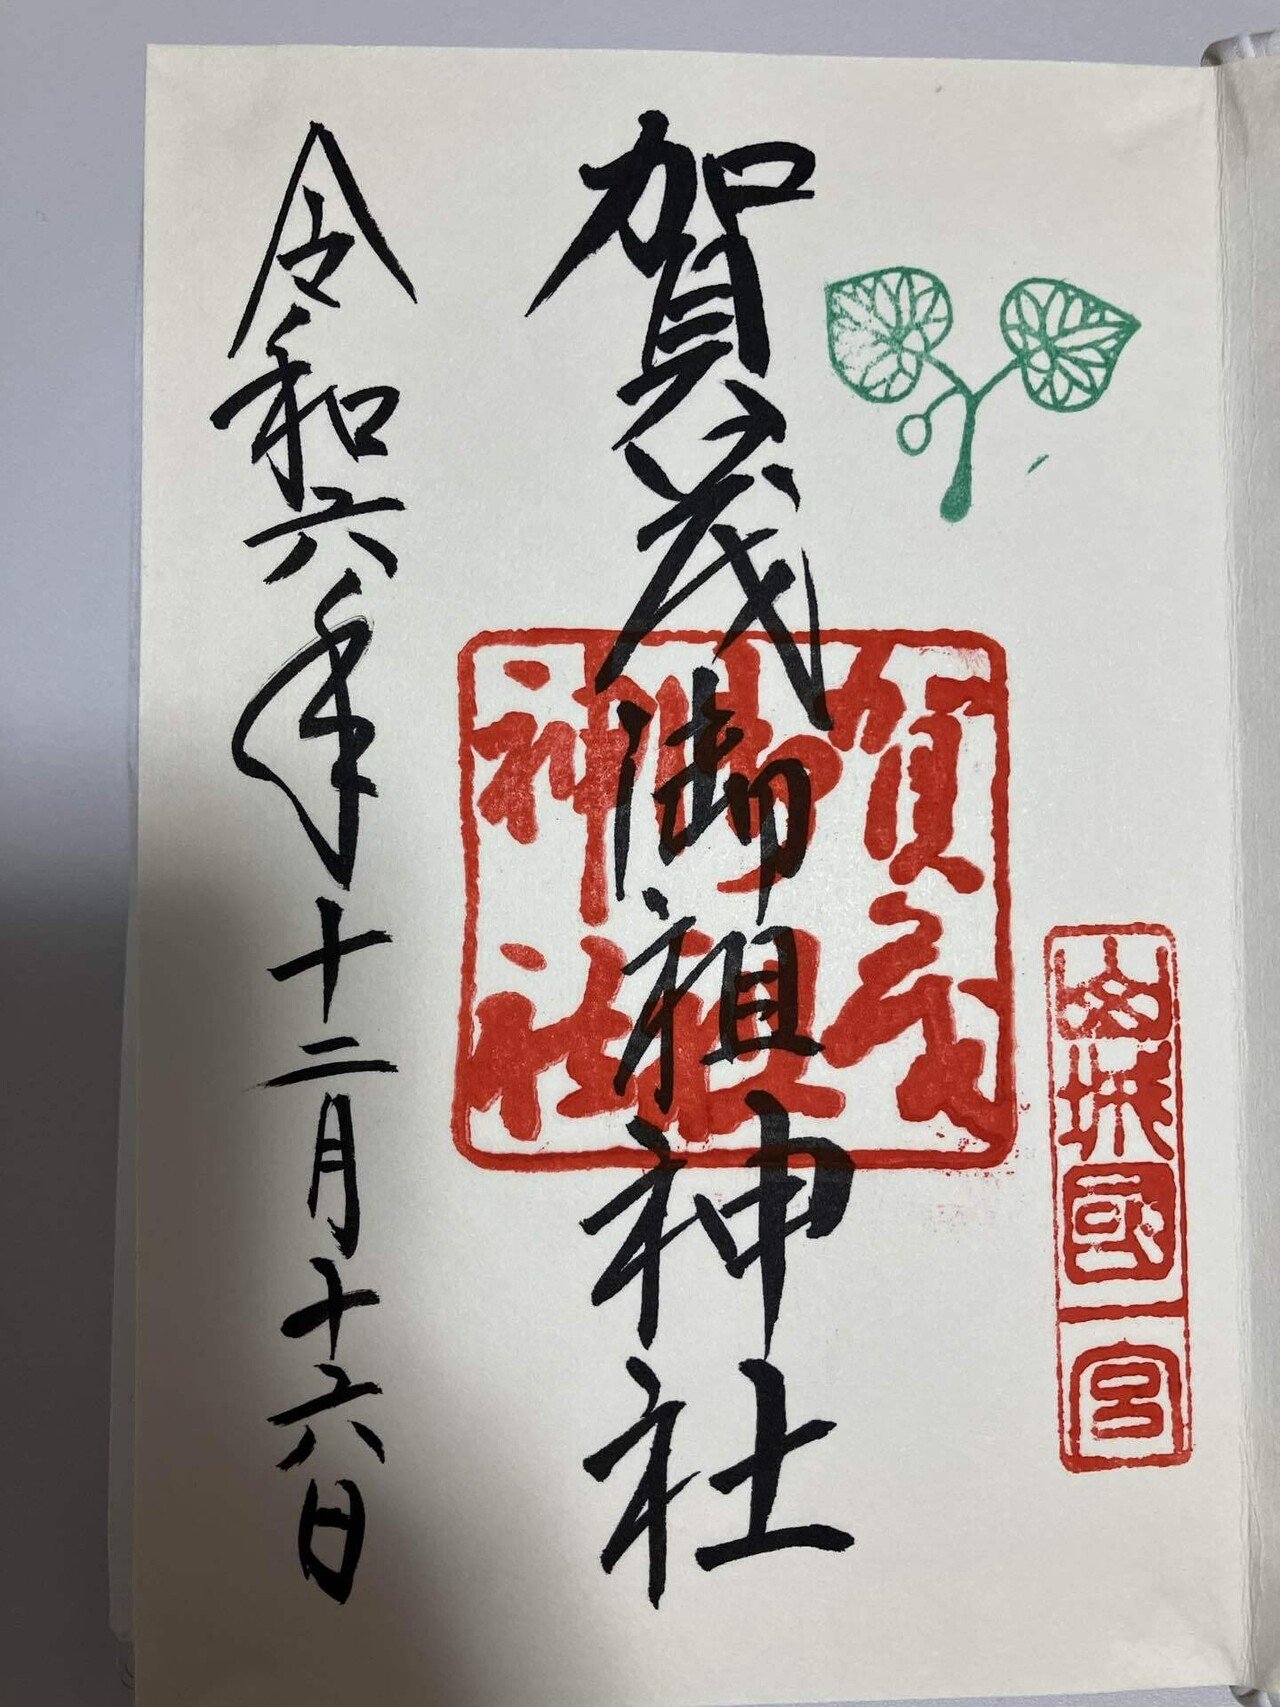 山城國一宮
賀茂御祖神社
賀茂
御祖
神社
令和六年十二月十六日